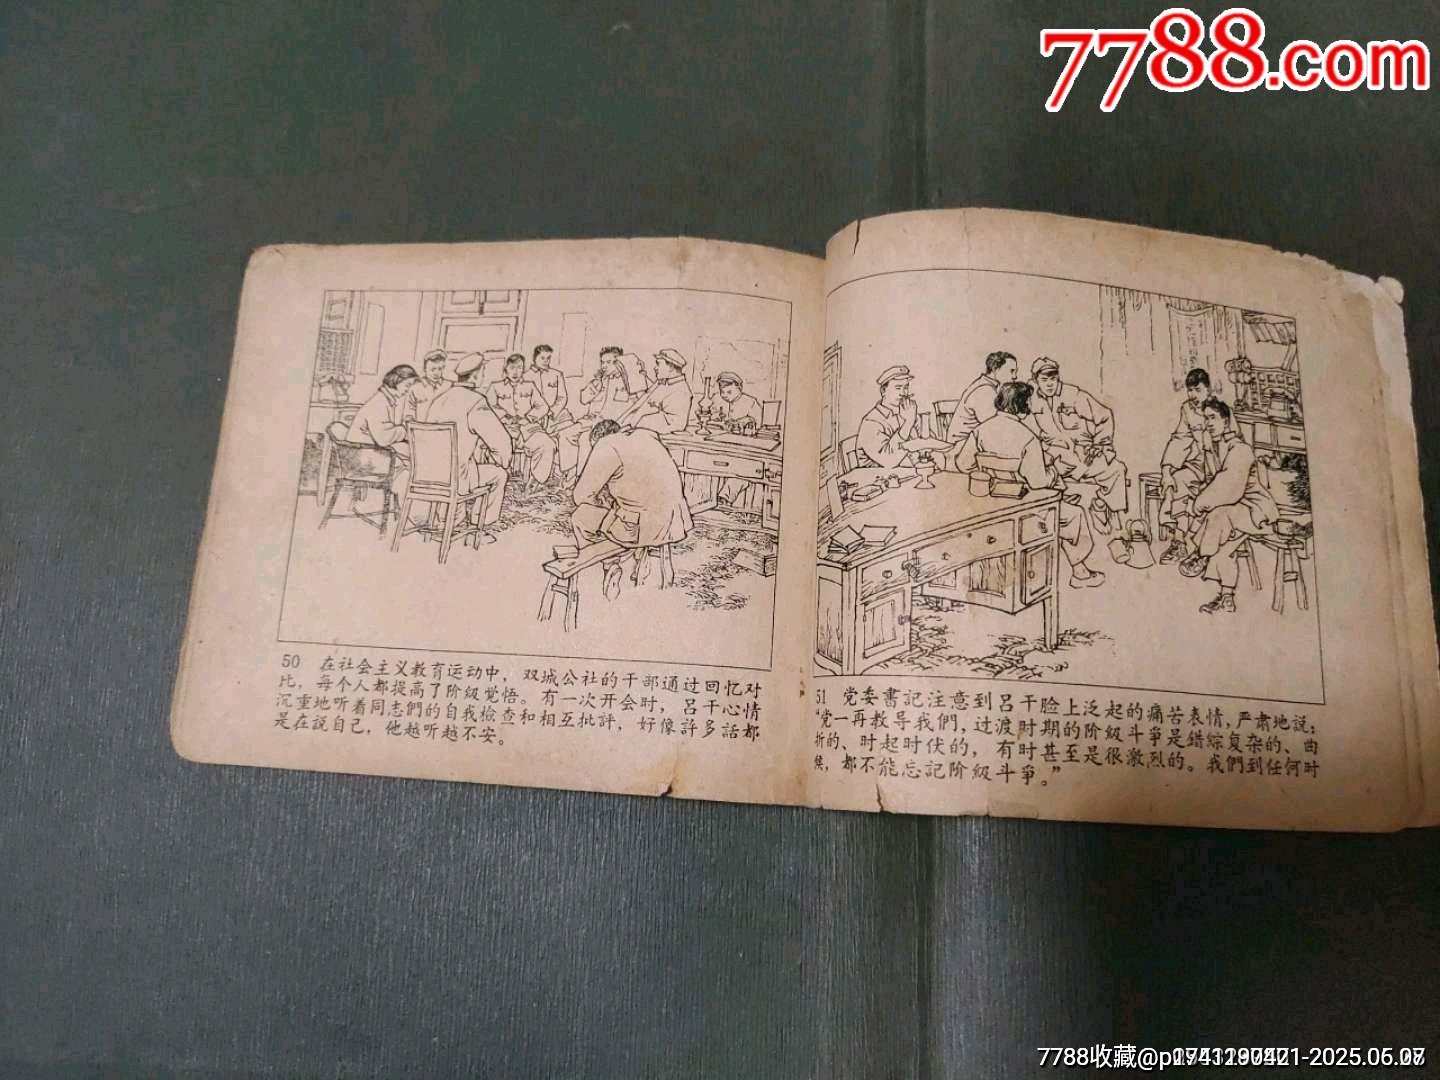 7788.com
50 在社会主义教育运动中，双城公社的干部通过回忆对
比，每个人都提高了阶級觉悟。有一次开会时，吕干心情
沉重地听着同志們的自我檢查和相互批評，好像許多話都
是在說自己，他越听越不安。
51 党委書記注意到吕干脸上泛起的痛苦表情，严肃地說：
“党一再教导我們，过渡时期的阶級斗爭是錯綜复杂的、曲
折的、时起时伏的，有时甚至是很激烈的。我們到任何时
候，都不能忘記阶級斗爭。”
7788收藏